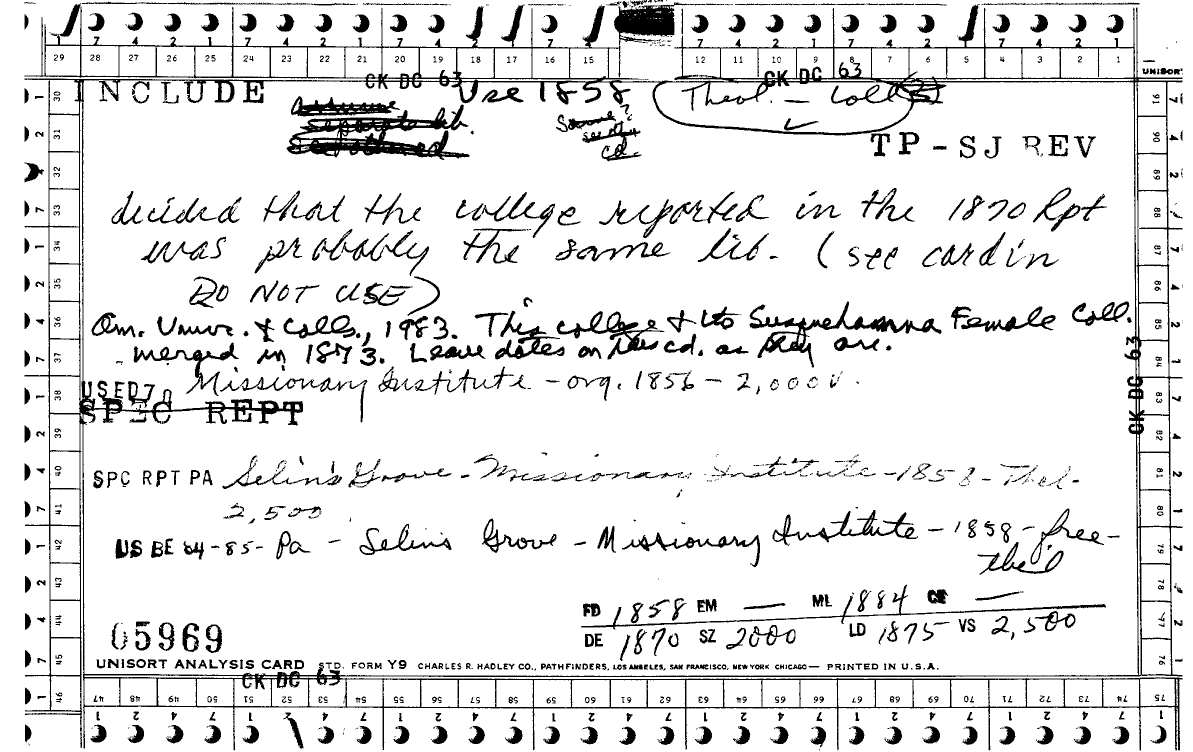 7 4 2 1 7 4 2 1 7 4 2 1 7 4 7 4 2 1 7 4 2 1 7 4 2 1
29 28 27 26 25 24 23 22 21 20 19 18 17 16 15 12 11 10 9 8 7 6 5 4 3 2 1
CK DC 63 CK DC 63 UNISORT
INCLUDE Use 1858 Theol. — Coll
Assume
separate lib. Same?
cd.
TP-SJ REV
decided that the college reported in the 1870 Rpt
was probably the same lib. (see card in
DO NOT USE)
Am. Univ. & Colls., 1983. This college & its Susquehanna Female Coll.
merged in 1873. Leave dates on this cd. as they are.
USED 70 Missionary Institute - org. 1856 - 2,000 v.
SPEC REPT
CK DC 63
SPC RPT PA Selin's Grove - Missionary Institute - 1858 - Theol.
2,500
US BE 84-85- Pa - Selins Grove - Missionary Institute - 1858 - free -
theo'l
FD 1858 EM — ML 1884 CE —
DE 1870 SZ 2000 LD 1875 VS 2,500
05969
UNISORT ANALYSIS CARD STD. FORM Y9 CHARLES R. HADLEY CO., PATHFINDERS, LOS ANGELES, SAN FRANCISCO, NEW YORK CHICAGO — PRINTED IN U.S.A.
CK DC 63
47 48 49 50 51 52 53 54 55 56 57 58 59 60 61 62 63 64 65 66 67 68 69 70 71 72 73 74 75
1 2 4 7 1 2 4 7 1 2 4 7 1 2 4 7 1 2 4 7 1 2 4 7 1 2 4 7 1